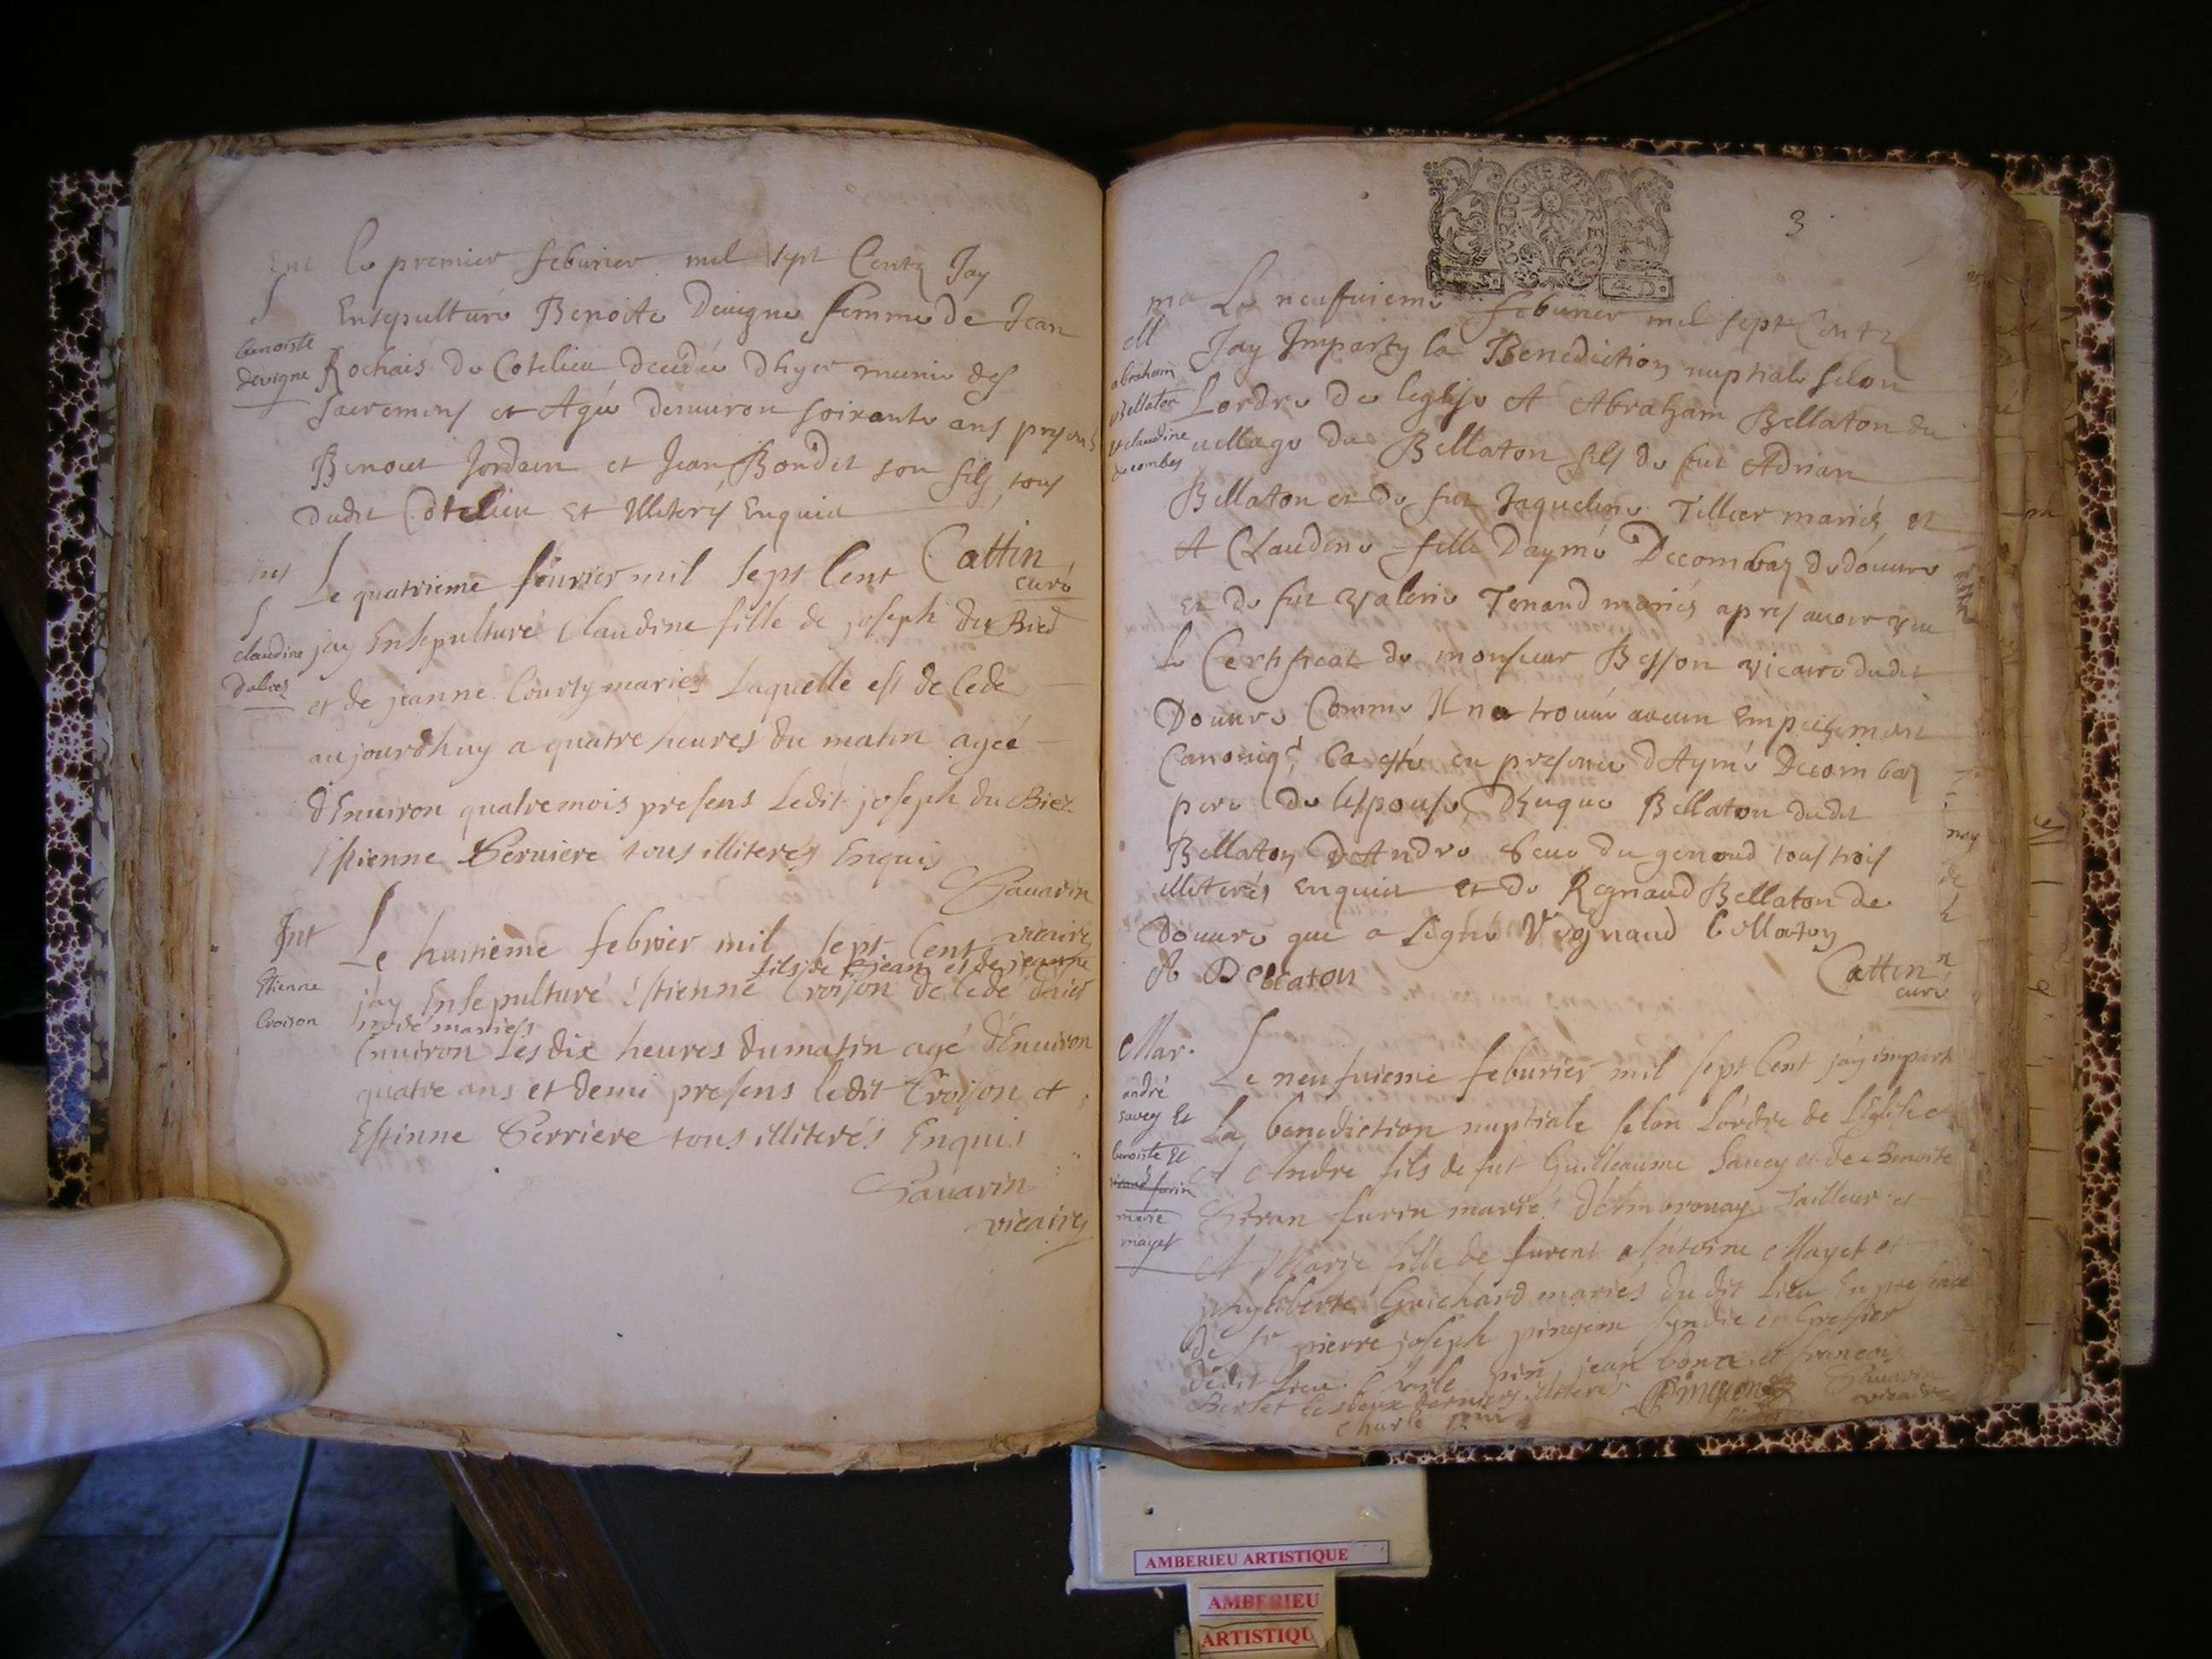 Ent Le premier feburier mil sept Centz Jay
S Ensepulturé Benoite Deuigne femme de Jean
benoiste
devigne Rochais de Cotelieu decedée dhyer munie des
sacremens et Agée denuiron soixante ans presens
Benoit Jordain et Jean Bondet son fils, tous
dudit Cotelieu et Illiterés Enquis
Cattin
curé
Ent Le quatrieme feurier mil sept Cent
S
claudine jay Ensepulturé Claudine fille de joseph du Bied
dubiez et de jeanne Courty mariés Laquelle est decedé
aujourdhuy a quatre heures du matin ageé
d'Enuiron quatre mois presens Ledit joseph du Biez
Estienne Seruiere tous illiterés Enquis
Sauarin
vicaire
Ent Le huitieme febvrier mil sept Cent
fils de jean et de jeanne
Etienne jay Ensepulturé Estienne Croison decedé
Croison mariés
Enuiron Les dix heures du matin agé d'Enuiron
quatre ans et demi presens ledit Croison et
Estinne Serriere tous illiterés Enquis
Sauarin
vicaire
BOURGOGNE BRESSE
3
ma Le neufuieme feburier mil sept Centz
M Jay Imparty la Benediction nuptiale selon
abraham
Bellaton Lordre de leglise A Abraham Bellaton du
et claudine
decombes uillage de Bellaton fils de fut Adrian
Bellaton et de fut Jaqueline Tillier mariés et
A Claudine fille Daymé Decombaz de douure
et de fut Valerie Tenand mariés apres auoir veu
Le Certificat de monsieur Besson vicaire dudit
Douure Comme Il na trouué aucun Empechement
Canoniq, Ca esté en presence d'Aymé Decombaz
pere de lespouse, d'hugue Bellaton dudit
Bellaton d'Andre seue du genoud tous trois
illiterés Enquis et de Regnaud Bellaton de
Douure qui a signé Regnaud bellaton
A Bellaton Cattin
curé
Mar. Le neufuieme feburier mil sept Cent jáy imparti
andré
savey et La benediction nuptiale selon Lordre de LEglise
benoiste et A Andre fils de fut Guilleaume Sauey et de Benoite
marie
mayet Siran furin marié d'Ambronay tailleur et
A Marie fille de furent Antoine Mayet et
phyliberte Guichard mariés du dit Lieu En presence
de Sr pierre joseph pingeon syndic et Greffier
dudit Lieu. Charle pin, jean bona et francois
Berset les deux derniers illiterés Pingeon Sauarin
vicaire
charle pin
AMBERIEU ARTISTIQUE
AMBERIEU
ARTISTIQU